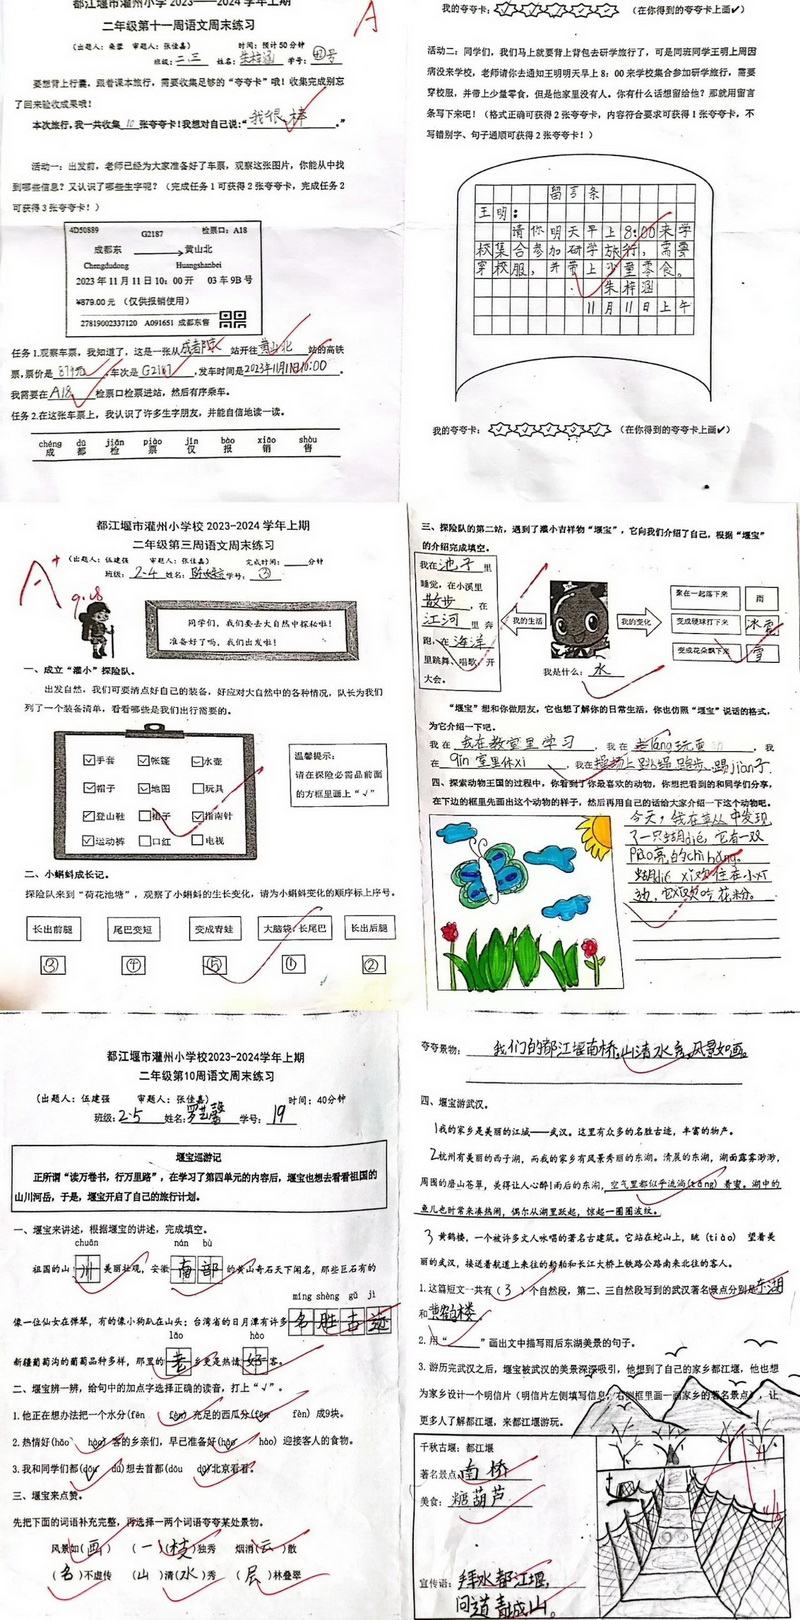 都江堰市灌州小学 2023——2024 学年上期
二年级第十一周语文周末练习
(出题人：桑蓉 审题人：张佳嘉) 时间：预计50分钟
班级：二.三 姓名：朱梓涵 学号：42号
要想背上行囊，跟着课本旅行，需要收集足够的“夸夸卡”哦！收集完成别忘
了回来验收成果哦！
本次旅行，我一共收集 10 张夸夸卡！我想对自己说：“我很棒。”
A
活动一：出发前，老师已经为大家准备好了车票，观察这张图片，你能从中找
到哪些信息？又认识了哪些生字呢？（完成任务1可获得2张夸夸卡，完成任务2
可获得3张夸夸卡！）
4D50889 G2187 检票口：A18
成都东 黄山北
Chengdudong Huangshanbei
2023年11月11日10：00开 03车9B号
¥879.00元 （仅供报销使用）
27819002337120 A091651 成都东售
任务1.观察车票，我知道了，这是一张从成都东站开往黄山北站的高铁
票，票价是879元，车次是G2187，发车时间是2023年11月11日10:00。
我需要在A18检票口检票进站，然后有序乘车。
任务2.在这张车票上，我认识了许多生字朋友，并能自信地读一读。
chéng dū jiǎn piào jǐn bào xiāo shòu
成 都 检 票 仅 报 销 售
我的夸夸卡： （在你得到的夸夸卡上画✓）
活动二：同学们，我们马上就要背上背包去研学旅行了，可是同班同学王明上周因
病没来学校，老师请你去通知王明明天早上8：00来学校集合参加研学旅行，需要
穿校服，并带上少量零食，但是他家里没有人。你有什么话想留给他？那就用留言
条写下来吧！（格式正确可获得2张夸夸卡，内容符合要求可获得1张夸夸卡，不
写错别字、句子通顺可获得2张夸夸卡！）
留言条
王明：
请你明天早上8:00来学
校集合参加研学旅行，需要
穿校服，并带上少量零食。
朱梓涵
11月11日上午
我的夸夸卡： （在你得到的夸夸卡上画✓）
都江堰市灌州小学校2023-2024学年上期
二年级第三周语文周末练习
（出题人：伍建强 审题人：张佳嘉） 完成时间：____分钟
班级：2-4 姓名： 学号：③
A+
9.18
同学们，我们要去大自然中探秘啦！
准备好了吗，我们出发啦！
一、成立“灌小”探险队。
出发自然，我们可要清点好自己的装备，好应对大自然中的各种情况，队长为我们
列了一个装备清单，看看哪些是我们出行需要的。
手套 帐篷 水壶
帽子 地图 玩具
登山鞋 裙子 指南针
运动裤 口红 电视
温馨提示：
请在探险必需品前面
的方框里画上“√”
二、小蝌蚪成长记。
探险队来到“荷花池塘”，观察了小蝌蚪的生长变化，请为小蝌蚪变化的顺序标上序号。
长出前腿 尾巴变短 变成青蛙 大脑袋，长尾巴 长出后腿
③ ④ ⑤ ① ②
三、探险队的第二站，遇到了灌小吉祥物“堰宝”，它向我们介绍了自己，根据“堰宝”
的介绍完成填空。
我在池子里
睡觉，在小溪里
散步，在
江河里奔
跑，在海洋
里跳舞、唱歌、开
大会。
我的生活
我的变化
我是什么：水
聚在一起落下来 雨
变成硬球打下来 冰雹
变成花朵飘下来 雪
“堰宝”想和你做朋友，它也想了解你的日常生活，你也仿照“堰宝”说话的格式，
为它介绍一下吧。
我在我在教室里学习，我在走láng玩耍，我
在qǐn室里休xi，我在操场上跳绳、跑步、踢jiàn子。
四、探索动物王国的过程中，你看到了你最喜欢的动物，你想把看到的和同学们分享，
在下边的框里先画出这个动物的样子，然后再用自己的话给大家介绍一下这个动物吧。
今天，我在草丛中发现
了一只蝴dié，它有一双
piào亮的chì bǎng。
蝴dié xǐ欢住在小xī
边，它xǐ欢吃花粉。
都江堰市灌州小学校2023-2024学年上期
二年级第10周语文周末练习
（出题人：伍建强 审题人：张佳嘉） 时间：40分钟
班级：2.5 姓名：罗艺馨 学号：19
堰宝巡游记
正所谓“读万卷书，行万里路”，在学习了第四单元的内容后，堰宝也想去看看祖国的
山川河岳，于是，堰宝开启了自己的旅行计划。
一、堰宝来讲述，根据堰宝的讲述，完成填空。
chuān nán bù
祖国的山川美丽壮观，安徽南部的黄山奇石天下闻名，那些巨石有的
míng shèng gǔ jì
像一位仙女在弹琴，有的像小狗趴在山头；台湾省的日月潭有许多名胜古迹
lǎo hào
新疆葡萄沟的葡萄品种多样，那里的老乡更是热情好客。
二、堰宝辨一辨，给句中的加点字选择正确的读音，打上“√”。
1.他正在想办法把一个水分(fēn fèn)充足的西瓜分(fēn fèn)成9块。
2.热情好(hǎo hào)客的乡亲们，早已准备好(hǎo hào)迎接客人的食物。
3.我和同学们都(dōu dū)想去首都(dōu dū)北京看看。
三、堰宝来点赞。
先把下面的词语补充完整，再选择一两个词语夸夸某处景物。
风景如(画) (一)(枝)独秀 烟消(云)散
(名)不虚传 (山)清(水)秀 (层)林叠翠
夸夸景物：我们的都江堰南桥，山清水秀，风景如画。
四、堰宝游武汉。
1我的家乡是美丽的江城——武汉。这里有众多的名胜古迹，丰富的物产。
2杭州有美丽的西子湖，而我的家乡有风景秀丽的东湖。清晨的东湖，湖面雾雾渺渺，
周围的磨山苍翠，美得让人心醉！雨后的东湖，空气里都似乎流淌(tǎng)着蜜。湖中的
鱼儿也时常来凑热闹，偶尔从湖里跃起，惊起一圈圈波纹。
3黄鹤楼，一个被许多文人咏唱的著名古建筑。它站在蛇山上，眺(tiào)望着美
丽的武汉，接送着航道上来往的船舶和长江大桥上铁路公路南来北往的客人。
1.这篇短文一共有(3)个自然段，第二、三自然段写到的武汉著名景点分别是东湖
和黄鹤楼。
2.用“____”画出文中描写雨后东湖美景的句子。
3.游历完武汉之后，堰宝被武汉的美景深深吸引，他想到了自己的家乡都江堰，他也想
为家乡设计一个明信片（明信片左侧填写信息，右侧框里画一画家乡的著名景点），让
更多人了解都江堰，来都江堰游玩。
千秋古堰：都江堰
著名景点：南桥
美食：糖葫芦
宣传语：拜水都江堰，
问道青城山。